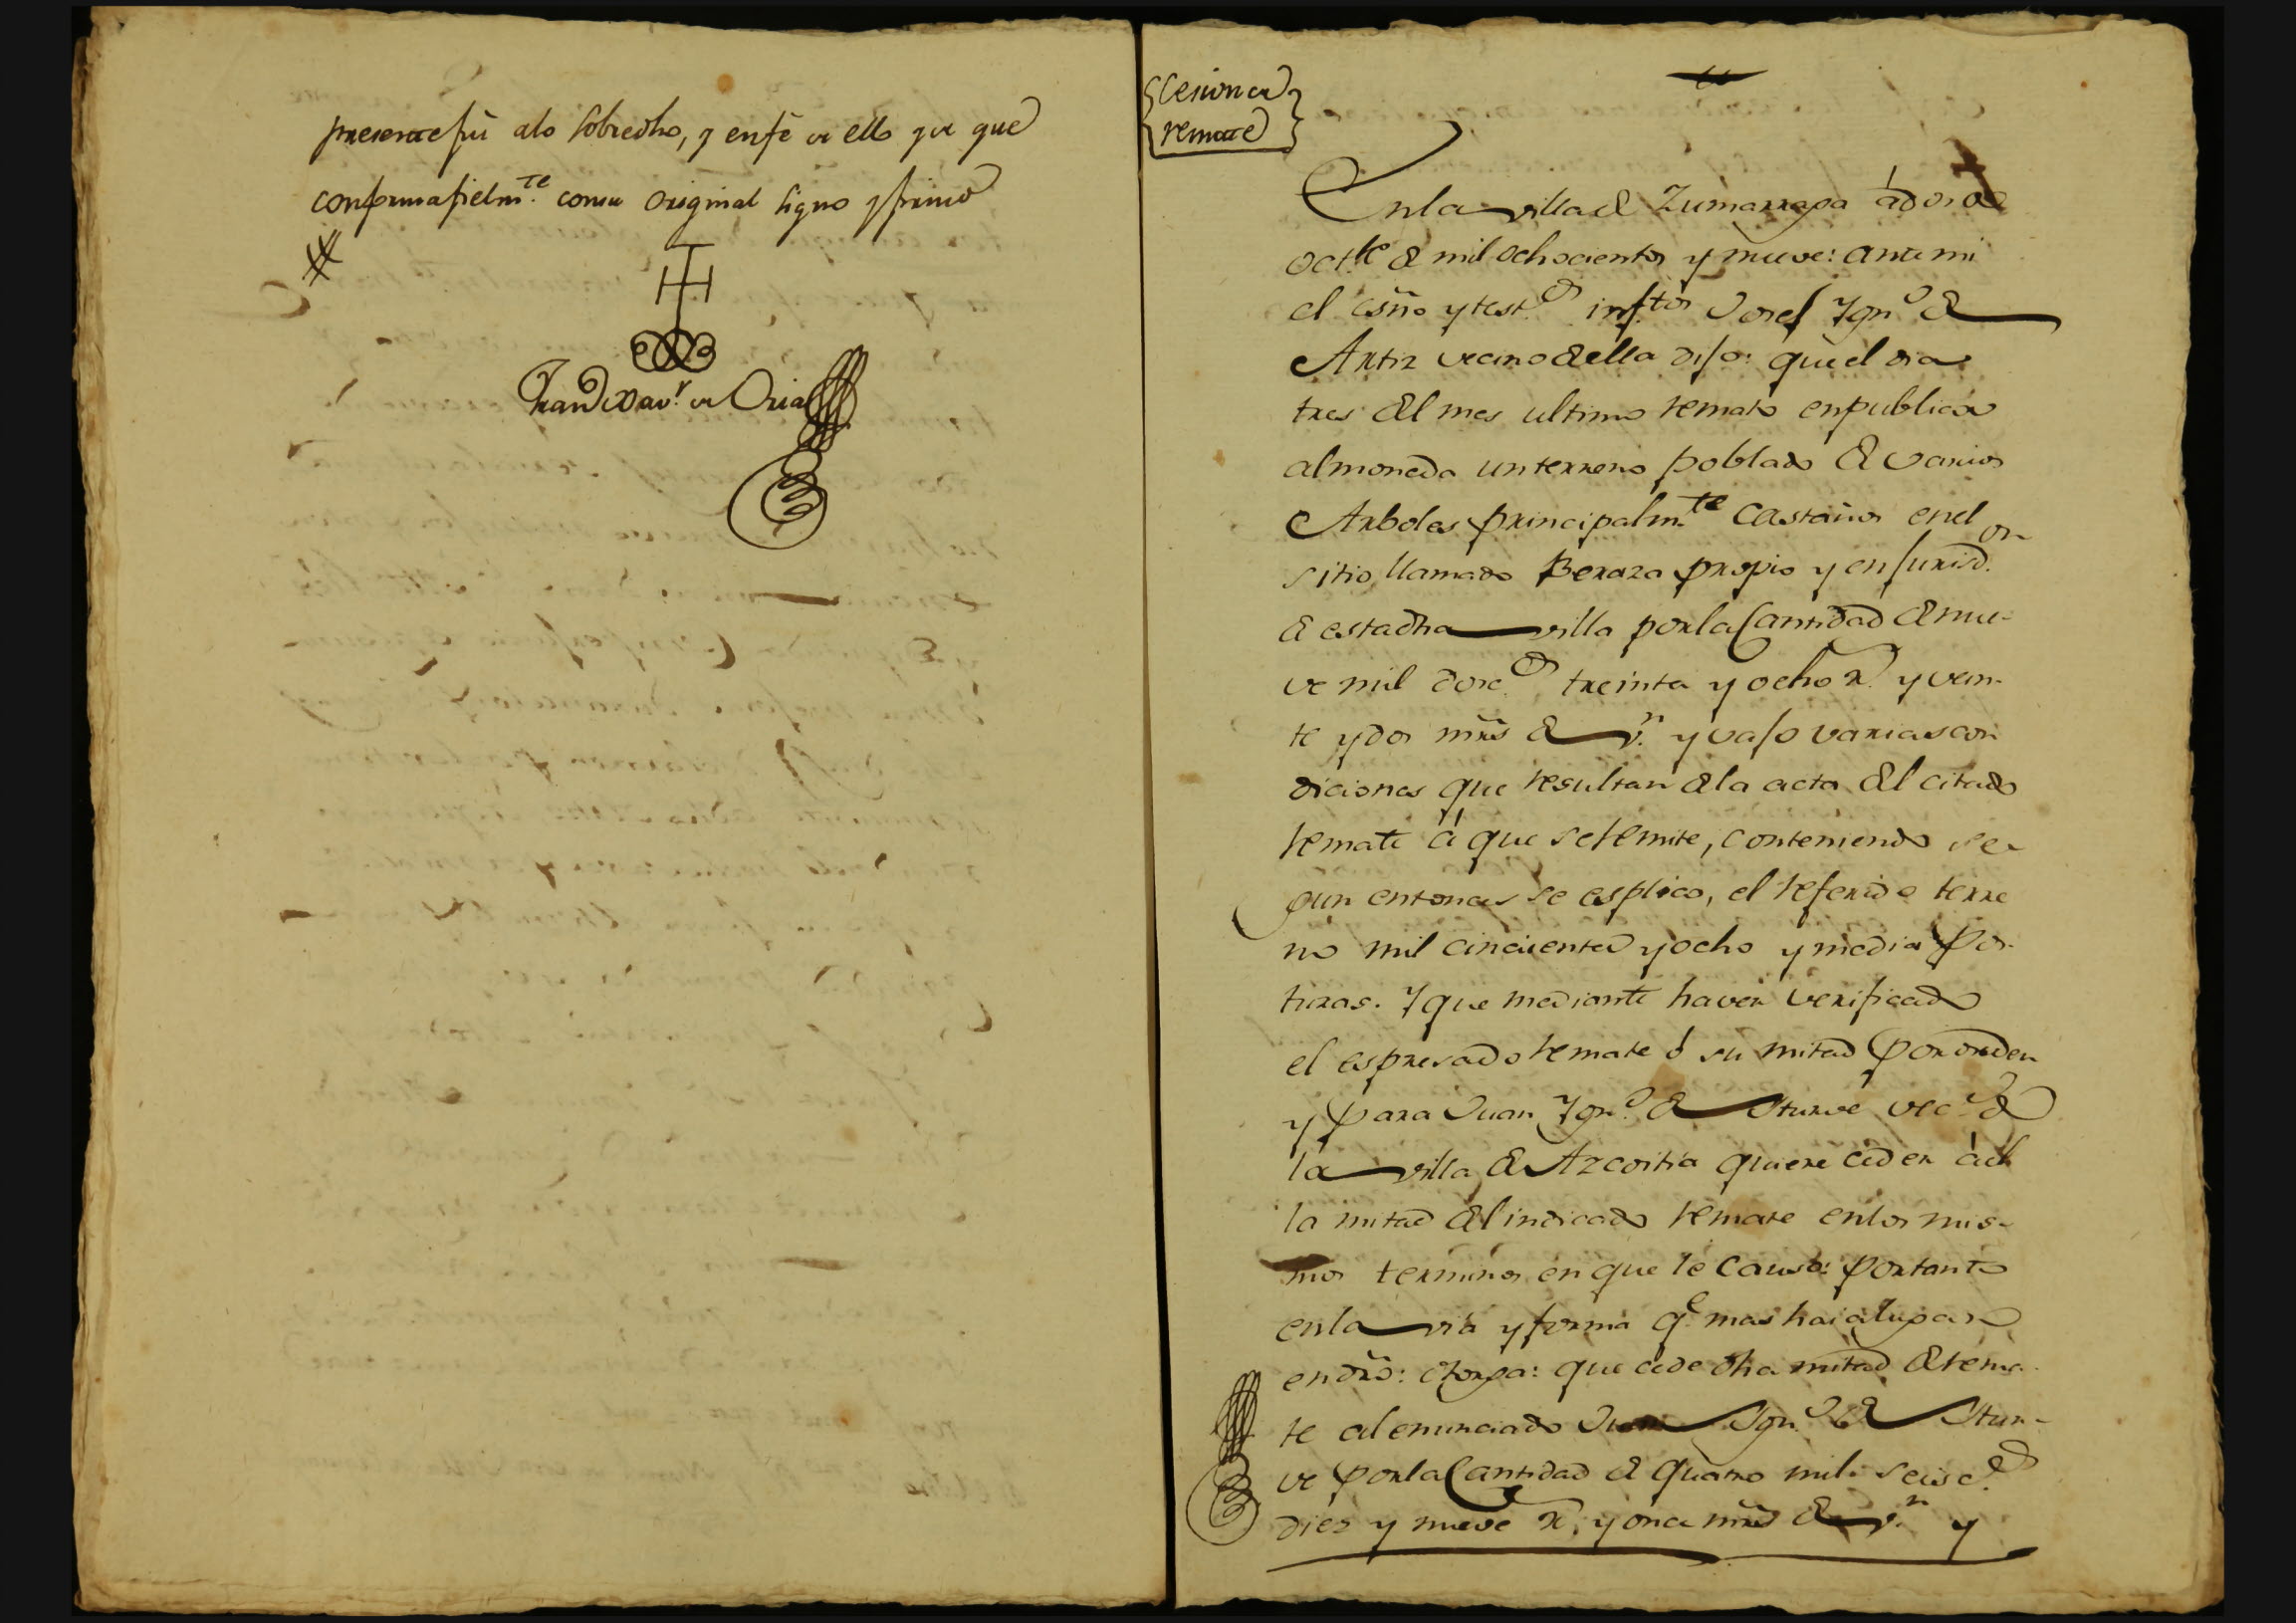 presente fuí alo sobredho, y enfé de ello y de que
conforma fielm.te con su original signo y firmo
Fran.co Xav.r de Oria
Cesion de
remate
En la villa de Zumarraga á dos de
oct.bre de mil ochocientos y nueve: ante mi
el esño y test.os inf.tos Josef Ygn.o de
Artiz vecino de ella dijo: que el dia
tres del mes ultimo remato en publica
almoneda un terreno poblado de varios
Arboles principalm.te Castaños en el
sitio llamado Beraza propio y en jurisd.on
de esta dha villa por la Cantidad de nue-
ve mil dosc.os treinta y ocho r.s y vein-
te y dos mrs de v.n y vajo varias con
diciones que resultan de la acta del citado
remate á que se remite, conteniendo se-
gun entonces se esplico, el referido terre
no mil cincuenta y ocho y media pos-
turas. Y que mediante haver verificado
el espresado remate ó su mitad por orden
y para Juan Ygn.o de Yturve vec.o de
la villa de Azcoitia quiere ceder á él
la mitad del indicado remate en los mis-
mos terminos en que le causó: por tanto
en la via y forma q.e mas haia lugar
en dro: otorga: que cede dha mitad de rema-
te al enunciado Juan Ygn.o de Ytur-
ve por la Cantidad de quatro mil seisc.os
diez y nueve r.s y once mrs de v.n y